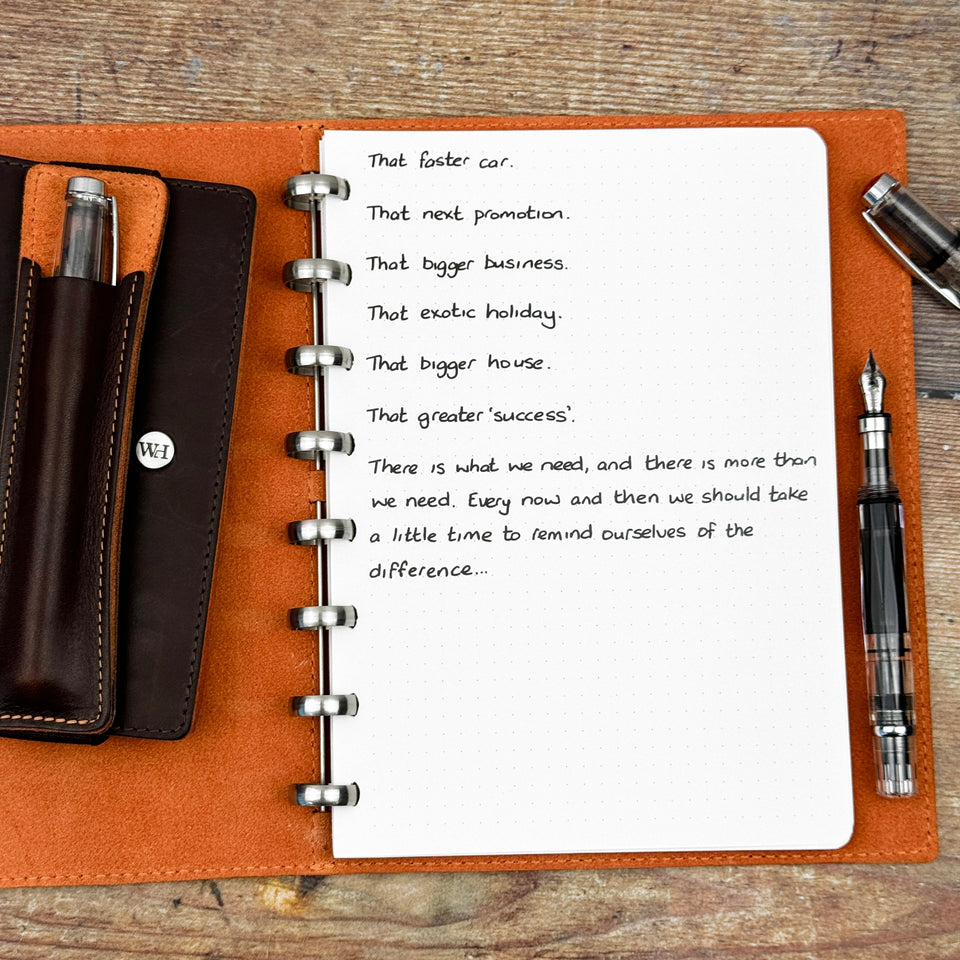 That faster car.
That next promotion.
That bigger business.
That exotic holiday.
That bigger house.
That greater 'success'.
There is what we need, and there is more than
we need. Every now and then we should take
a little time to remind ourselves of the
difference...
WH